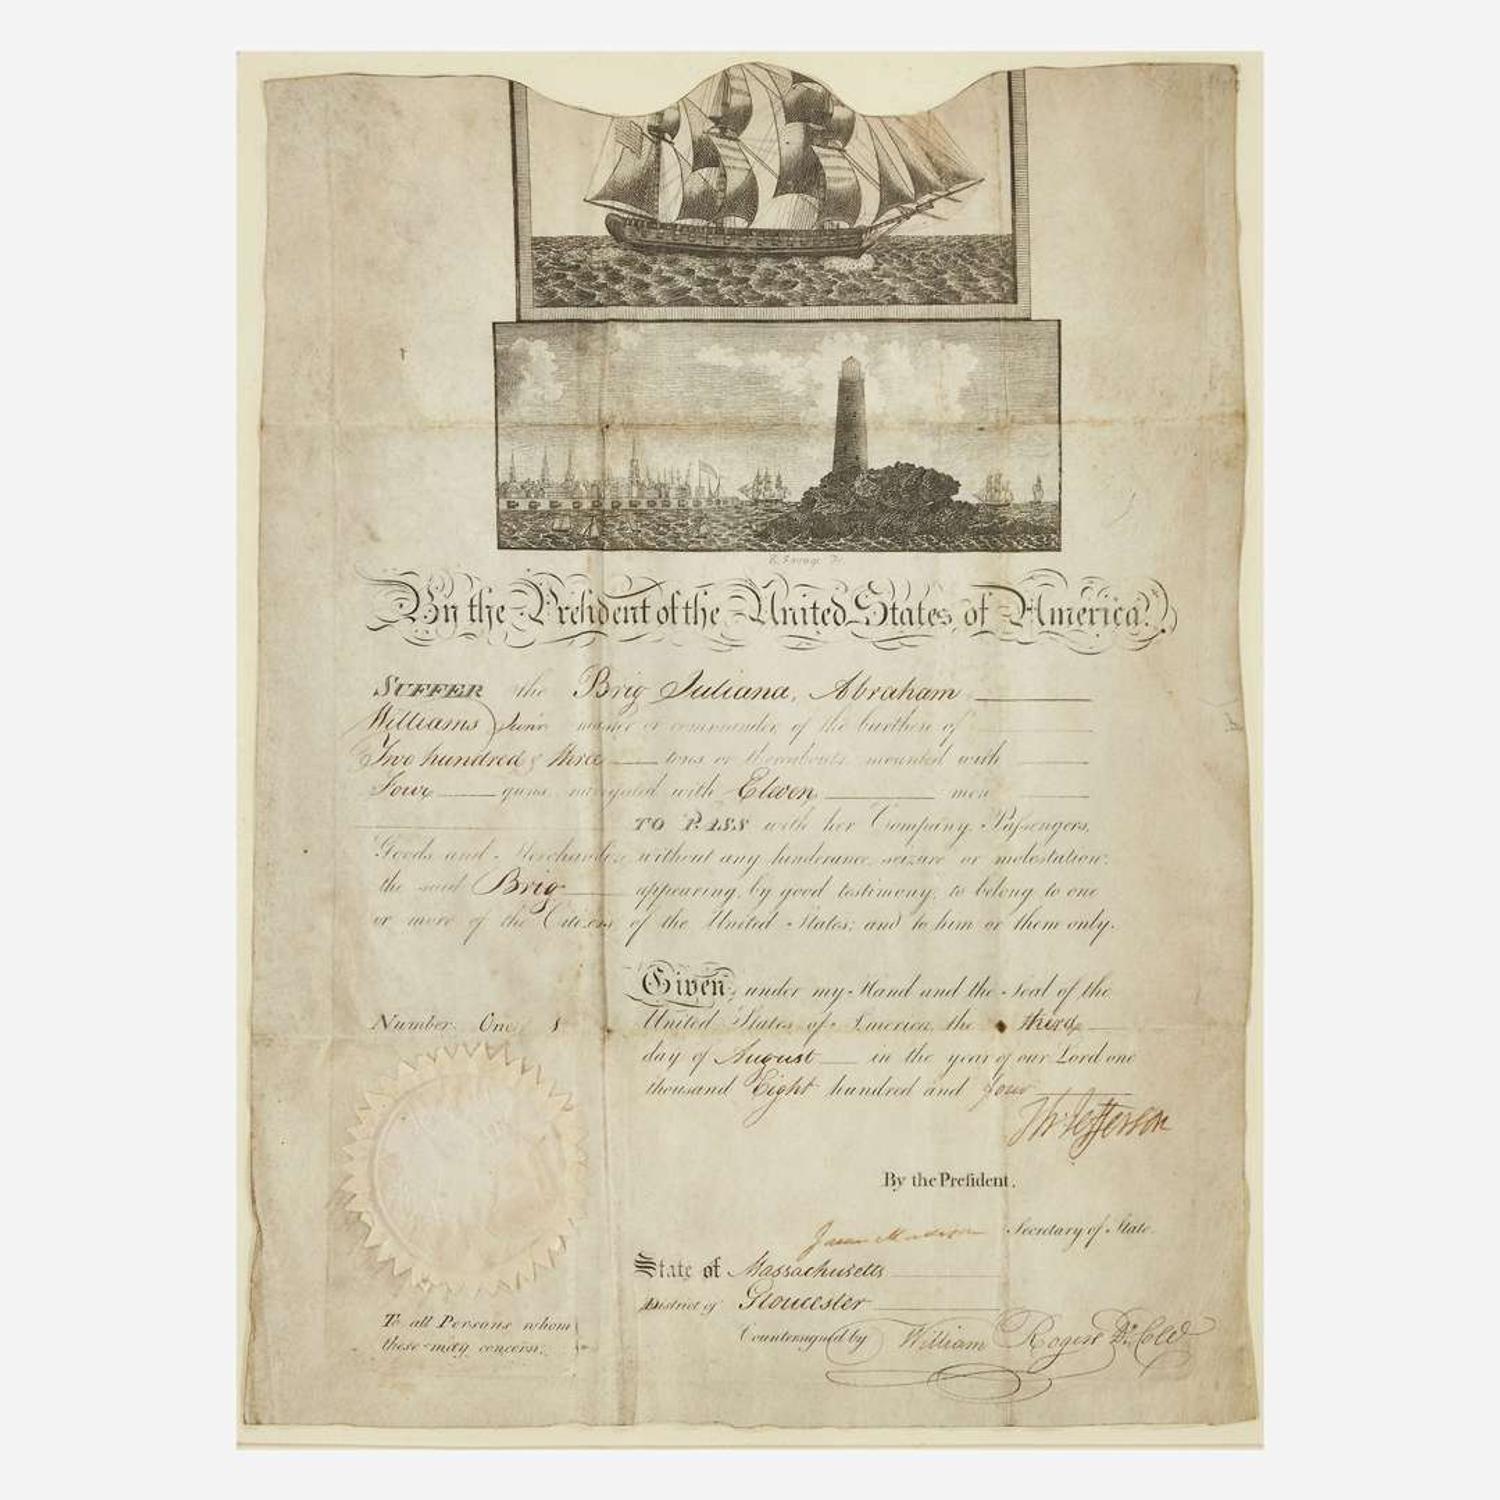 E. Savage
By the President of the United States of America.
SUFFER the Brig Juliana, Abraham
Williams Junr master or commander, of the burthen of
Two hundred & three tons or thereabouts mounted with
Four guns, navigated with Eleven men
TO PASS with her Company, Paſsengers,
Goods and Merchandize without any hinderance, seizure or molestation:
the said Brig appearing, by good testimony, to belong to one
or more of the Citizens of the United States; and to him or them only.
Given, under my Hand and the Seal of the
Number One United States of America, the third
day of August in the year of our Lord one
thousand Eight hundred and four
Th: Jefferson
By the Preſident.
James Madison Secretary of State.
State of Massachusetts
District of Gloucester
To all Persons whom
these may concern.
Countersigned by William Rogers